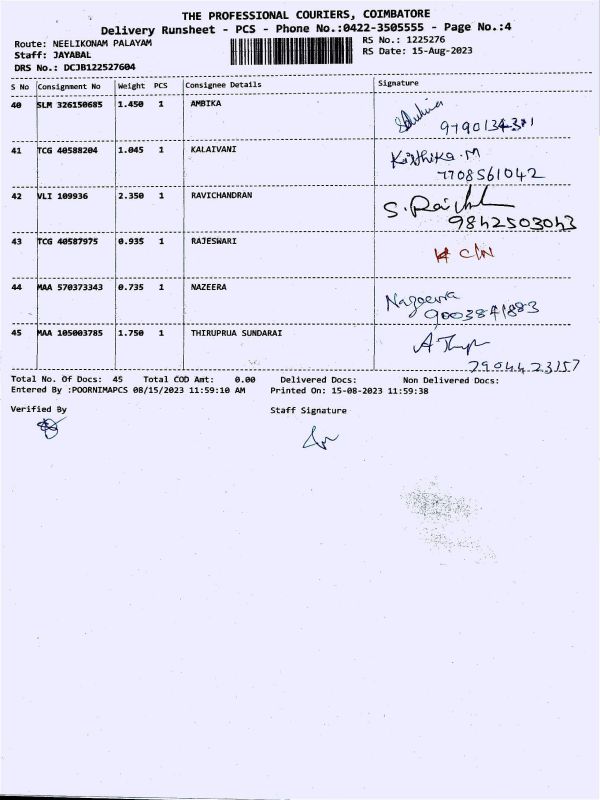 THE PROFESSIONAL COURIERS, COIMBATORE
Delivery Runsheet - PCS - Phone No.:0422-3505555 - Page No.:4
Route: NEELIKONAM PALAYAM
RS No.: 1225276
Staff: JAYABAL
RS Date: 15-Aug-2023
DRS No.: DCJB122527604
S No Consignment No Weight PCS Consignee Details Signature
40 SLM 326150685 1.450 1 AMBIKA
41 TCG 40588204 1.045 1 KALAIVANI Karthika.M
7708561042
42 VLI 109936 2.350 1 RAVICHANDRAN
9842503043
43 TCG 40587975 0.935 1 RAJESWARI
44 MAA 570373343 0.735 1 NAZEERA Nazeera
9003841883
45 MAA 105003785 1.750 1 THIRUPRUA SUNDARAI
7904423157
Total No. Of Docs: 45 Total COD Amt: 0.00 Delivered Docs: Non Delivered Docs:
Entered By :POORNIMAPCS 08/15/2023 11:59:10 AM Printed On: 15-08-2023 11:59:38
Verified By Staff Signature